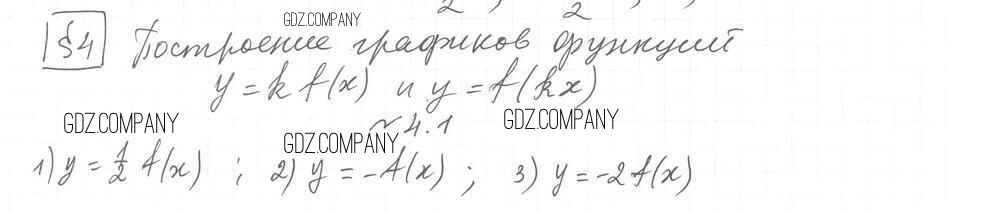 GDZ.COMPANY
§4 Построение графиков функций
y = k f(x) и y = f(kx)
GDZ.COMPANY GDZ.COMPANY
№ 4.1
GDZ.COMPANY
1) y = 1/2 f(x) ; 2) y = -f(x) ; 3) y = -2f(x)